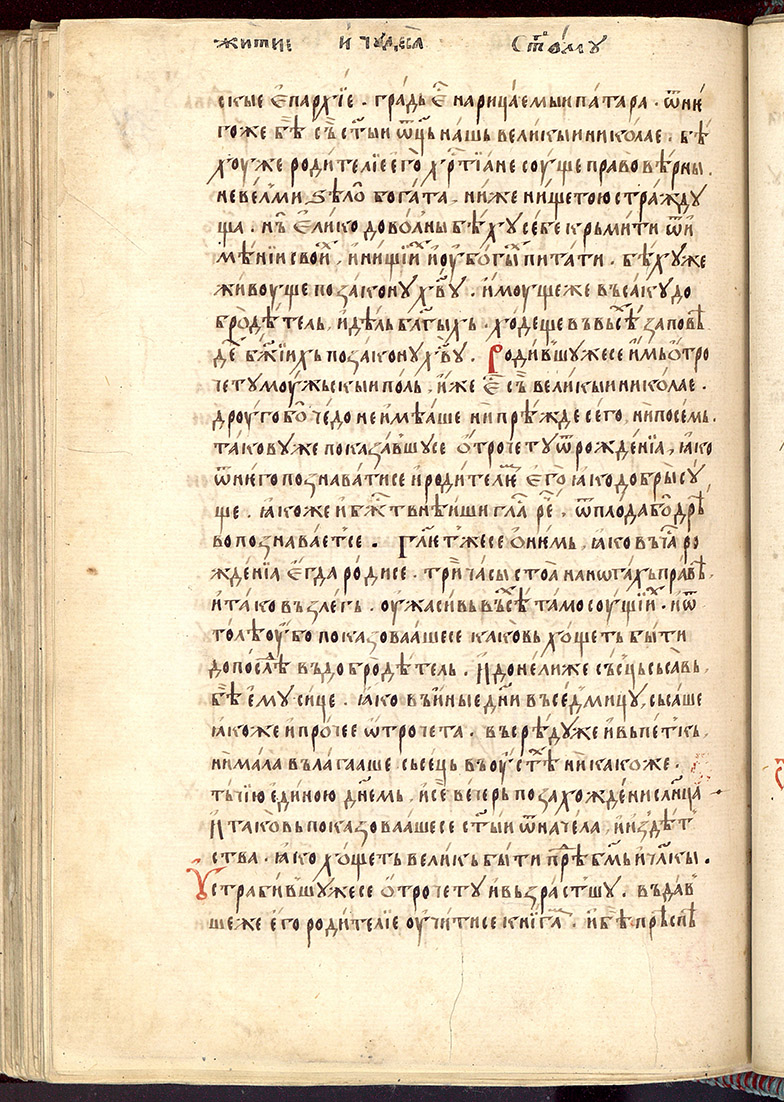 житїе и чудеса ст҃ому
скые єпархїе · градь є҃ нарицаемыи патара · ѿ ни
гоже бѣ съ ст҃ыи ѿц҃ь нашь великыи николае · бѣ
хоу же родителїе єго хрⷭ҇тїане соуще правовѣрны ·
не велми ѕѣлѡ богата · ниже нищетою стражду
ща · нъ єлико доволны бѣху себе крьмити ѿ и
мѣнїи своиⷯ, и нищїиⷯ и оубогыⷯ питати · бѣху же
живоуще по закону хв҃у · имоуще же въсаку до
бродѣтель, и дѣль бл҃гыхь · ходеще въ въсѣⷯ заповѣ
деⷯ бж҃їихъ по закону хв҃у · Родившу же се имь ѡтро
чету моужьскыи поль, иже є҃ съ великыи николае ·
дроуго бѡ чедо не имѣаше ни прѣжде сего, ни посемь ·
таковꙋ же показавшусе ѡтрочету ѿ рожденїа, ꙗко
ѿ него познаватисе и родителїе єго ꙗко добры су
ще · ꙗкоже и бжⷭ҇твнѣиши гла҃ рⷱ҇е, ѿ плода бѡ дрѣ
во познаваетсе · Гл҃ет же се ѡ немь, ꙗко въ чⷭ҇а ро
жденїа єгда родисе · три часы стоа на ногахъ правь,
и тако възлегь · оужасивь въсѣⷯ тамо соущїиⷯ · и ѿ
толѣ оубо показовааше се каковь хощеть быти
допослѣ въ добродѣтель · И донелиже съсць съсавь,
бѣ ему сице · ꙗко въ иные дн҃и въ седмицу, съсаше
ꙗкоже и прочее ѡтрочета · въ срѣду же и вь петкь,
ни мала вълагааше сьсець въ оустѣⷯ никакоже ·
тъчїю единою днемь, и се вечерь по захождени слн҃ца
И таковь показовааше се ст҃ыи ѿ начела, и из дѣт
ства · ꙗко хощеть великь быти прѣⷣ бм҃ь и чл҃кы ·
Устрабившу же се ѡтрочету и възрастшу · въдав
ше же єго родителїе оучитисе книгаⷨ · и бѣ прѣспѣ